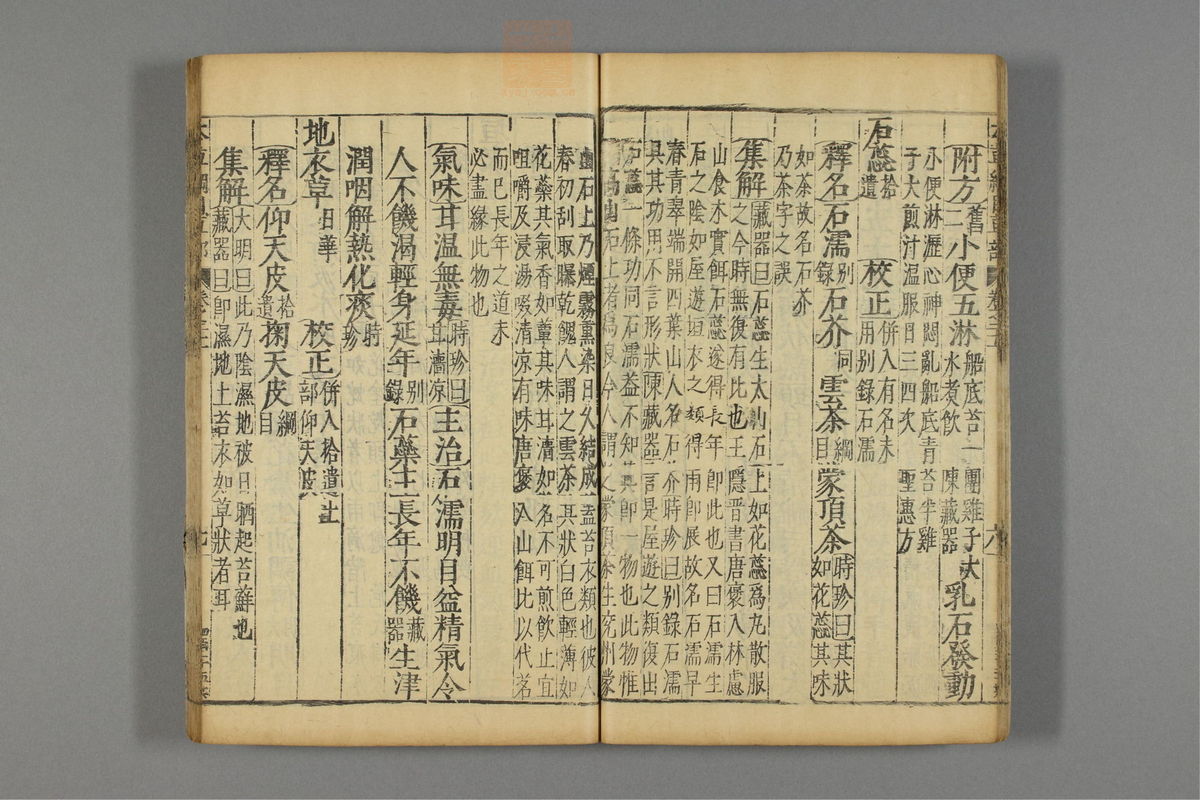 附方舊二小便五淋船底苔一團雞子大
水煮飲陳藏器乳石發動
小便淋瀝心神悶亂船底青苔半雞
子大煎汁温服日三四次聖惠方
石蕊拾遺校正併入有名未用别錄石濡
釋名石濡别錄石芥同雲茶綱目蒙頂茶時珍曰其狀如花蕊其味
如茶故名石芥
乃茶字之誤
集解藏器曰石蕊生太山石上如花蕊爲丸散服
之今時無復有比也王隱晉書唐褒入林慮
山食木實餌石蕊遂得長年即此也又曰石濡生
石之陰如屋遊垣衣之類得雨即展故名石濡早
春青翠端開四葉山人名石芥時珍曰别錄石濡
具其功用不言形狀陳藏器言是屋遊之類復出
石蕊一條功同石濡葢不知其即一物也此物惟
高山石上者爲良今人謂之蒙頂茶生兖州蒙
山石上乃煙霧熏染日久結成葢苔衣類也彼人
春初刮取曝乾餽人謂之雲茶其狀白色輕薄如
花蕊其氣香如蕈其味甘濇如茗不可煎飲止宜
咀嚼及浸湯啜清凉有味唐褒入山餌比以代茗
而已長年之道未
必盡緣此物也
氣味甘温無毒時珍曰甘濇凉主治石濡明目益精氣令
人不饑渴輕身延年别錄石蕊主長年不饑藏器生津
潤咽解熱化痰時珍
地衣草日華校正併入拾遺土部仰天皮
釋名仰天皮拾遺掬天皮綱目
集解大明曰此乃陰濕地被日晒起苔蘚也
藏器曰即濕地上苔衣如草狀者耳